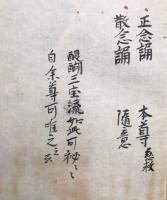 正念誦 本尊
散念誦 隨意
醍醐三宝流如此可秘々
自余尊可准之云云